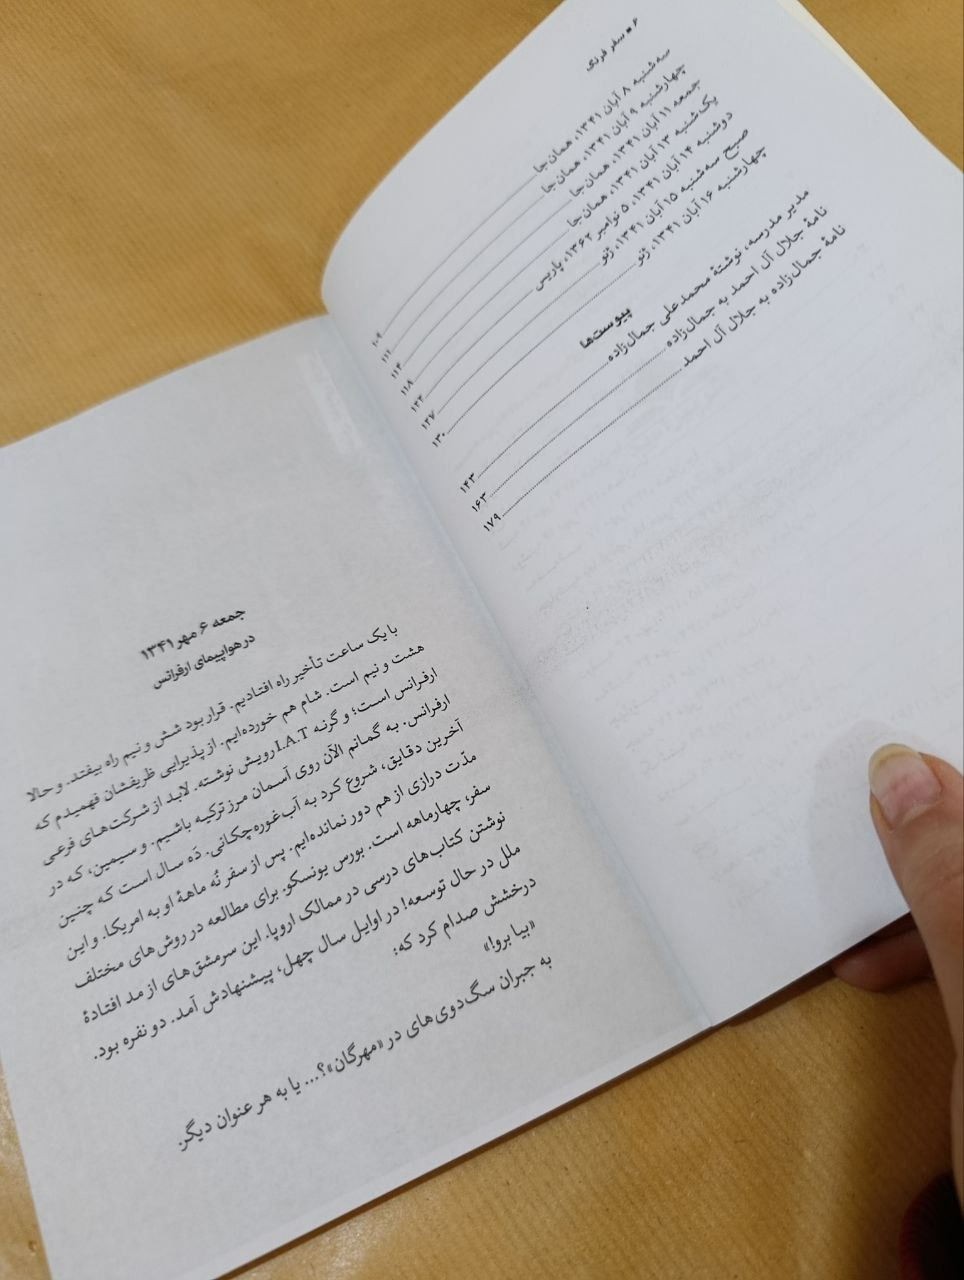 ۶ ▪ سفر فرنگ
سه‌شنبه ۸ آبان ۱۳۴۱، همان‌جا ۱۰۲
چهارشنبه ۹ آبان ۱۳۴۱، همان‌جا ۱۱۲
جمعه ۱۱ آبان ۱۳۴۱، همان‌جا ۱۱۴
یک‌شنبه ۱۳ آبان ۱۳۴۱، همان‌جا ۱۱۸
دوشنبه ۱۴ آبان ۱۳۴۱، ۵ نوامبر ۱۳۶۲، پاریس ۱۲۲
صبح سه‌شنبه ۱۵ آبان ۱۳۴۱، ژنو ۱۲۷
چهارشنبه ۱۶ آبان ۱۳۴۱، ژنو ۱۳۰
پیوست‌ها
مدیر مدرسه، نوشتهٔ محمدعلی جمال‌زاده ۱۴۳
نامهٔ جلال آل احمد به جمال‌زاده ۱۶۳
نامهٔ جمال‌زاده به جلال آل احمد ۱۷۹
جمعه ۶ مهر ۱۳۴۱
در هواپیمای ارفرانس
با یک ساعت تأخیر راه افتادیم. قرار بود شش و نیم راه بیفتد. و حالا
هشت و نیم است. شام هم خورده‌ایم. از پذیرایی ظریفشان فهمیدم که
ارفرانس است؛ و گرنه I.A.T رویش نوشته. لابد از شرکت‌های فرعی
ارفرانس. به گمانم الآن روی آسمان مرز ترکیه باشیم. و سیمین، که در
آخرین دقایق، شروع کرد به آب‌غوره‌چکانی. دَه سال است که چنین
مدّت درازی از هم دور نمانده‌ایم. پس از سفر نُه ماههٔ او به امریکا. و این
سفر، چهارماهه است. بورس یونسکو. برای مطالعه در روش‌های مختلف
نوشتن کتاب‌های درسی در ممالک اروپا. این سرمشق‌های از مد افتادهٔ
ملل در حال توسعه! در اوایل سال چهل، پیشنهادش آمد. دو نفره بود.
درخشش صدام کرد که:
«بیا برو!»
به جبران سگ‌دوی‌های در «مهرگان»؟... یا به هر عنوان دیگر.